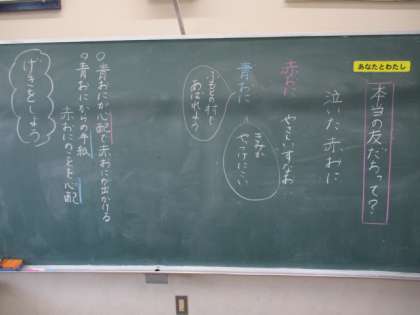 あなたとわたし
本当の友だちって?
泣いた赤おに
赤おに やさしいすなお
青おに
きみが
やっつけにこい
ふもとの村で
あばれよう
○青おにが心配で赤おにが出かける
○青おにからの手紙
赤おにのことを心配
げきをしよう